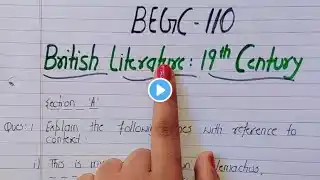 BEGC-110
British Literature: 19th Century
Section 'A'
Ques:1 Explain the following with reference to
context
i) This is my